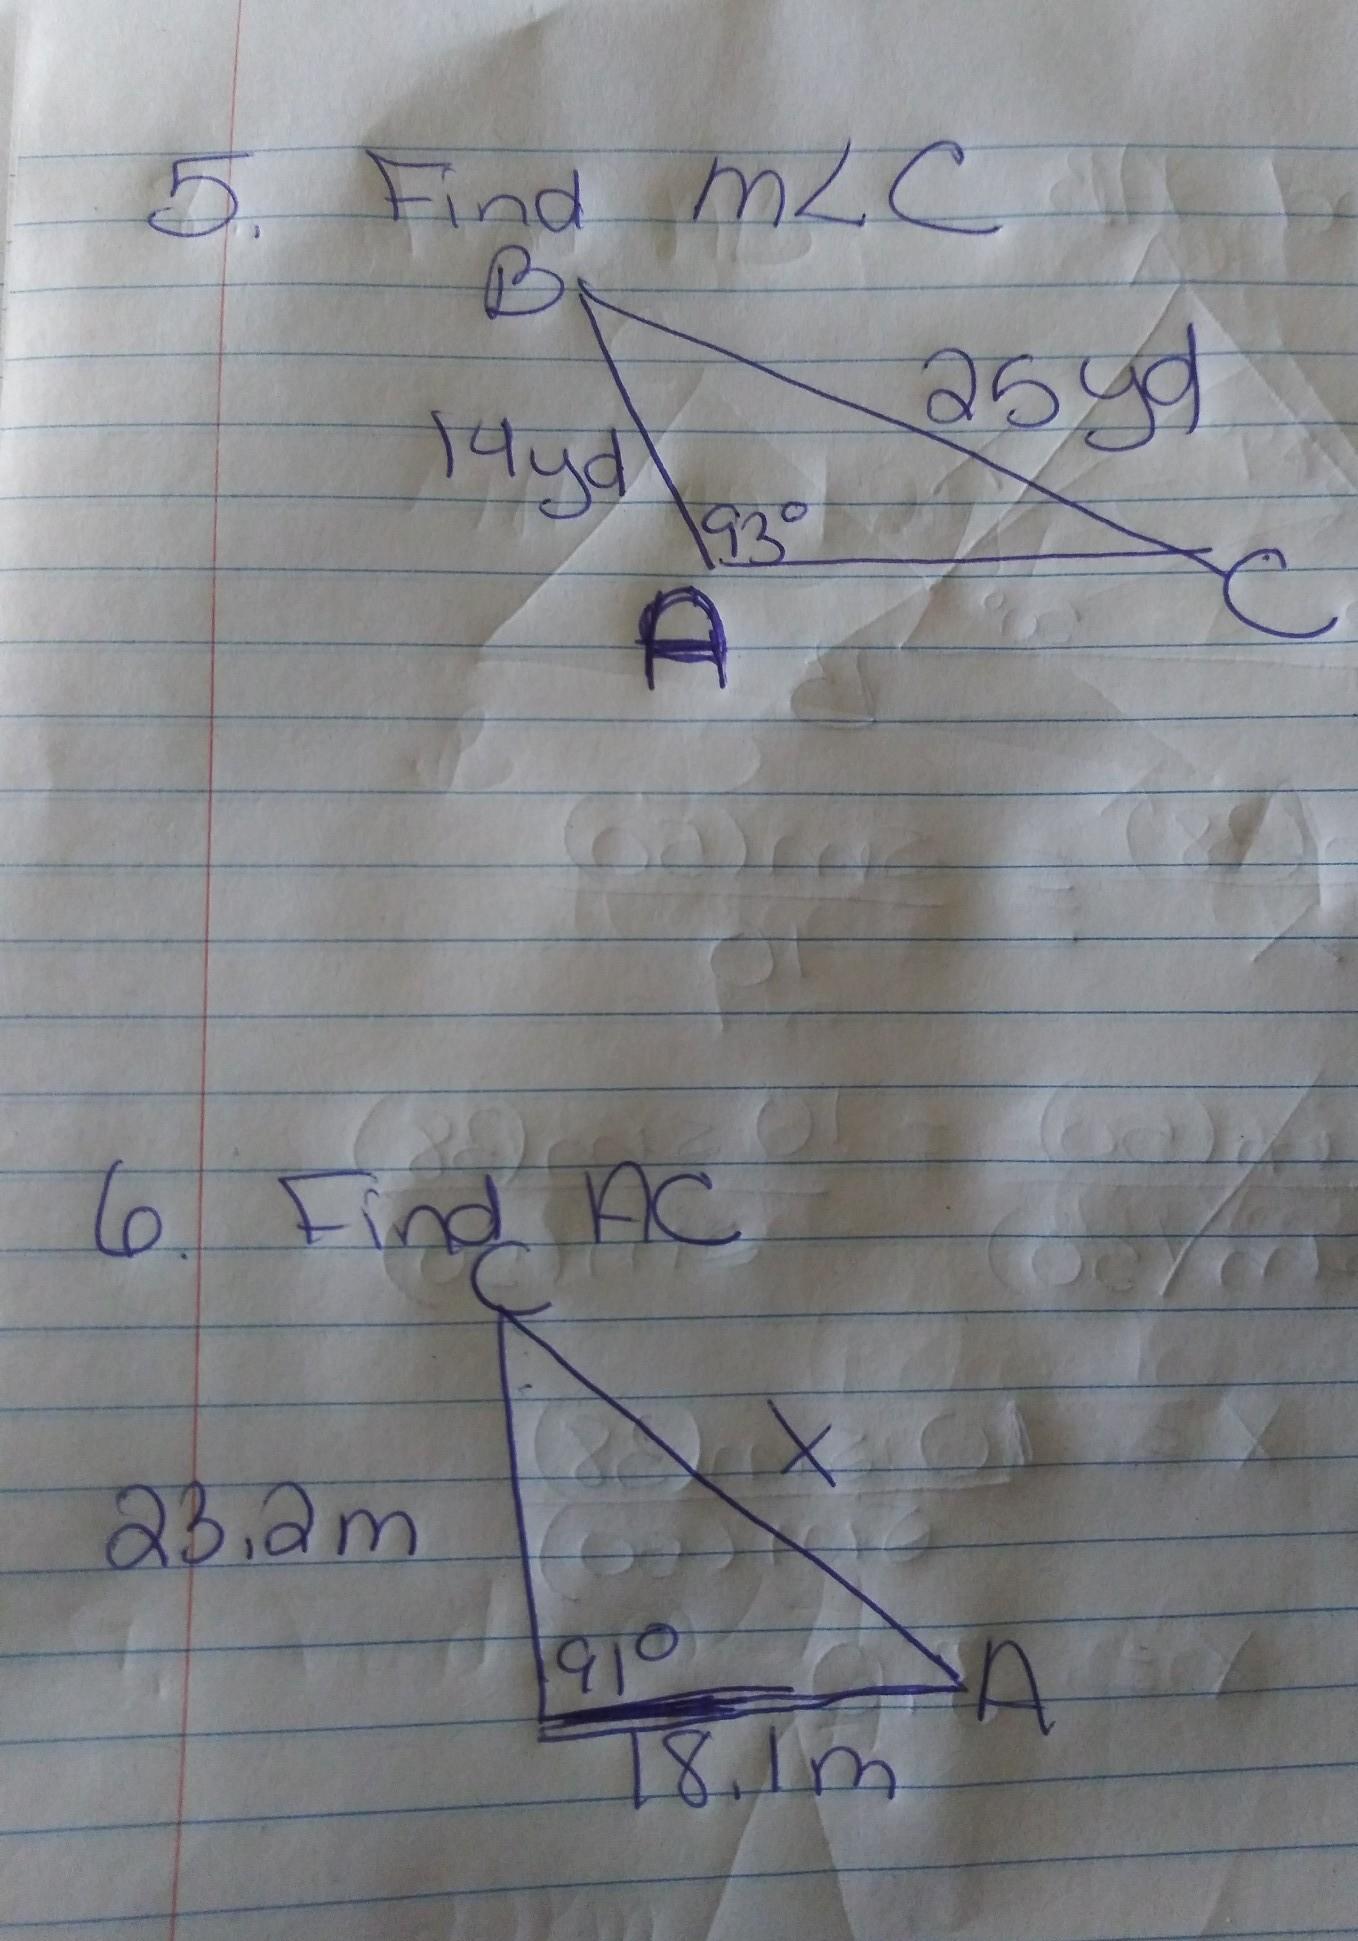 5. Find m∠C
B
25yd
14yd
93°
A
C
6. Find AC
C
X
23.2m
91°
A
18.1m